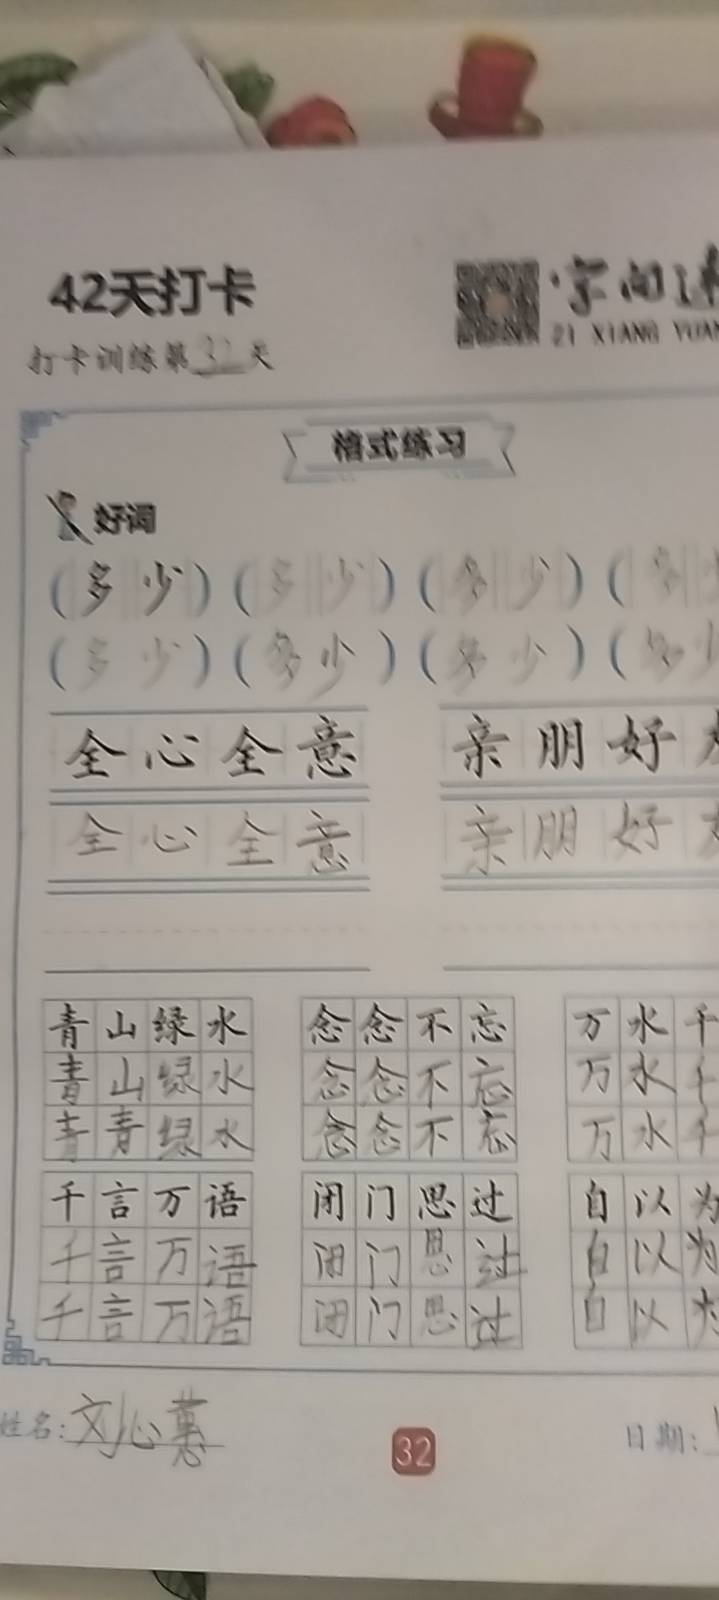 42天打卡
字向
21 XIANG YUAN
打卡训练第32天
格式练习
好词
(多少)(多少)(多少)(多
(多少)(多少)(多少)(多少
全心全意 亲朋好友
全心全意 亲朋好友
青山绿水 念念不忘 万水千
青山绿水 念念不忘 万水千
青青绿水 念念不忘 万水千
千言万语 闭门思过 自以为
千言万语 闭门思过 自以为
千言万语 闭门思过 自以为
姓名:刘心慧
32
日期: